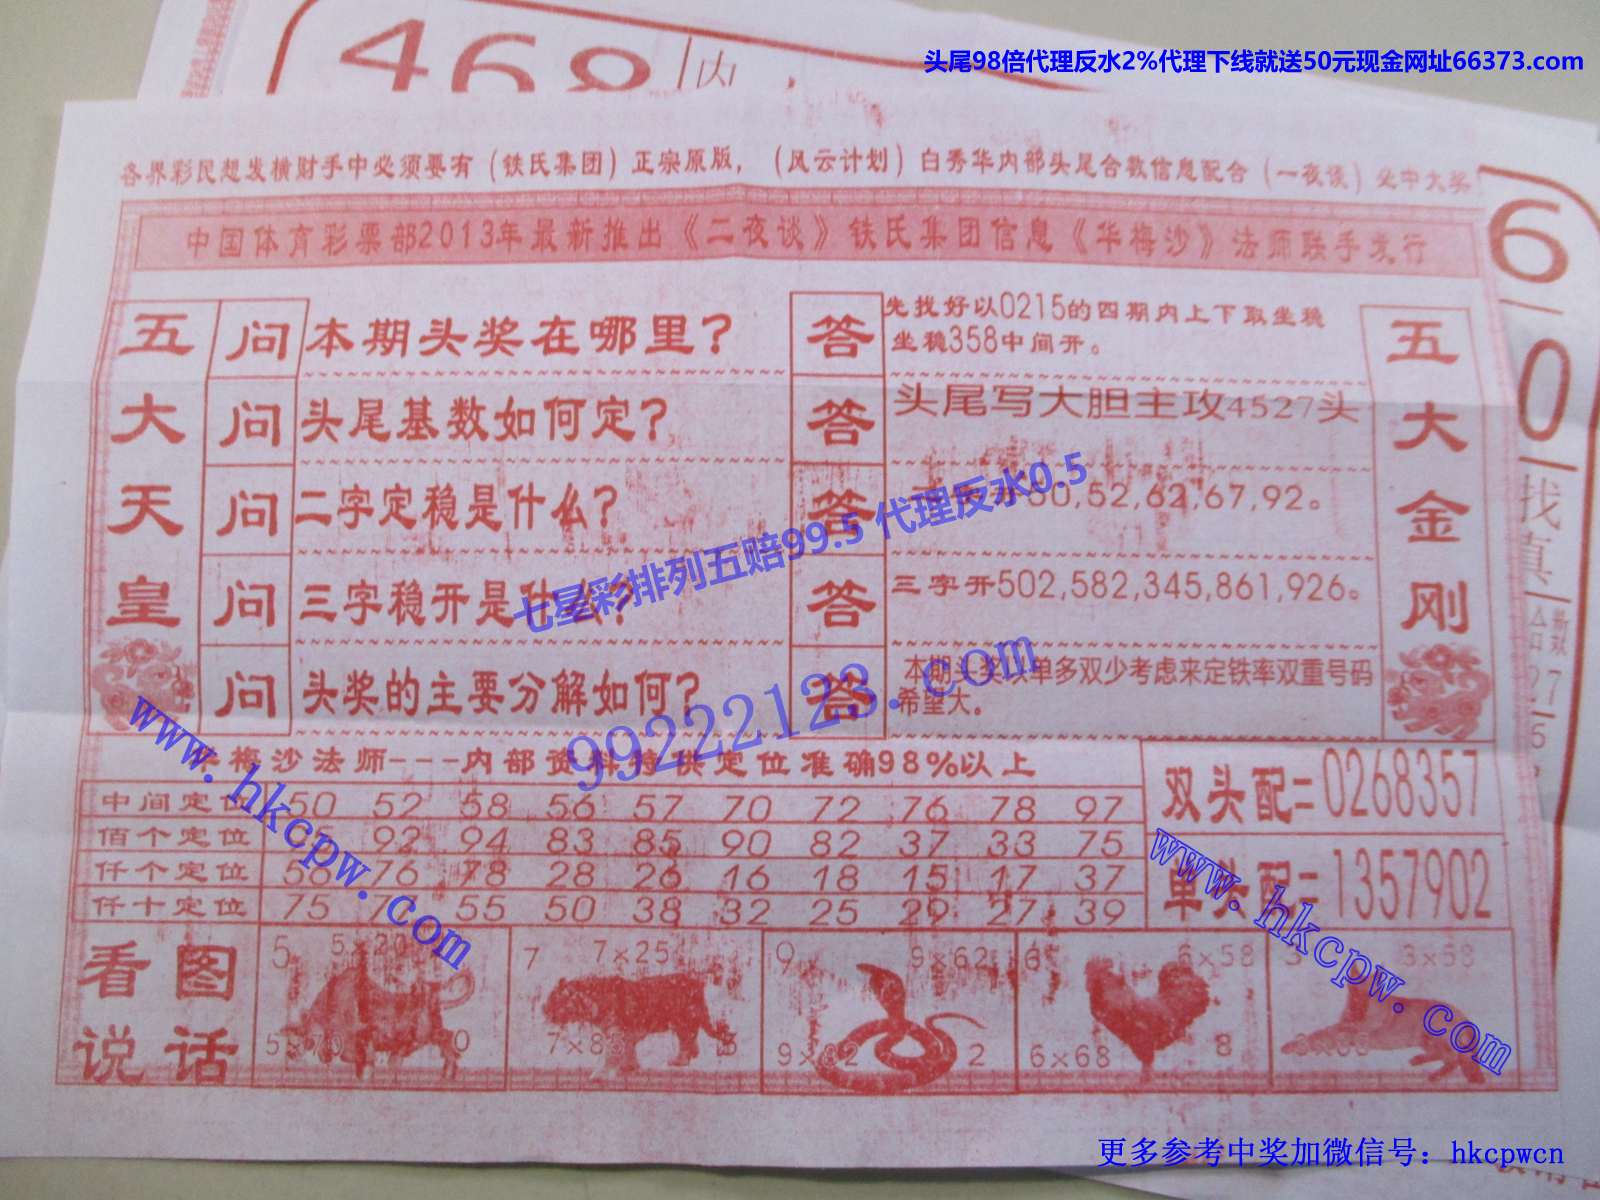 468
内
头尾98倍代理反水2%代理下线就送50元现金网址66373.com
各界彩民想发横财手中必须要有（铁氏集团）正宗原版，（风云计划）白秀华内部头尾合数信息配合（一夜谈）必中大奖
中国体育彩票部2013年最新推出《二夜谈》铁氏集团信息《华梅沙》法师联手发行
五大天皇
问 本期头奖在哪里？
答 先找好以0215的四期内上下取坐稳
坐稳358中间开。
问 头尾基数如何定？
答 头尾写大胆主攻4527头
问 二字定稳是什么？
答 50,52,62,67,92。
问 三字稳开是什么？
答 三字开502,582,345,861,926。
问 头奖的主要分解如何？
答 本期头奖以单多双少考虑来定铁率双重号码
希望大。
五大金刚
七星彩排列五赔99.5 代理反水0.5
99222123.com
www.hkcpw.com
www.hkcpw.com
华梅沙法师---内部资料特供定位准确98%以上
中间定位 50 52 58 56 57 70 72 76 78 97
佰个定位 92 94 83 85 90 82 37 33 75
仟个定位 58 76 78 28 26 16 18 15 17 37
仟十定位 75 55 50 38 32 25 29 27 39
双头配=0268357
单头配=1357902
看图说话
5 5×20
5×70 0
7 7×25
7×85
9 9×62
9×82 2
6 6×58
6×68 8
3 3×58
6
0
找真
27
6
更多参考中奖加微信号：hkcpwcn